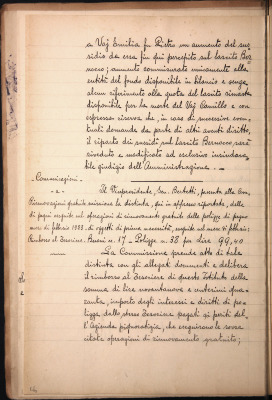 a Vaj Emilia fu Pietro con aumento del sus-
sidio da essa fin qui percepito sul lascito Ber-
noceo; aumento commisurato unicamente alla
entità del fondo disponibile in bilancio e senza
alcun riferimento alla quota del lascito rimasta
disponibile per la morte del Vaj Camillo e con
espressa riserva che, in caso di successive even-
tuali domande da parte di altri aventi diritto,
il riparto dei sussidi sul lascito Bernoceo sarà
riveduto e modificato ad esclusivo insindaca-
bile giudizio dell'Amministrazione. —
Commissioni. -
- a - Il Vicepresidente, Sen. Bertetti, presenta alla Com-
missione la distinta, qui in appresso riportata, delle
di pegni eseguite nel mese di febbraio:
Rimborso al Tesoriere. Buoni n. 17 - Polizze n. 38 per lire 99,40
La Commissione prende atto di tale
distinta con gli allegati documenti e delibera
il rimborso al Tesoriere di questo Istituto della
somma di lire novantanove e centesimi qua-
ranta, importo degli interessi e diritti di po-
lizza dallo stesso Tesoriere pagati ai periti del-
l'Agenzia pignoratizia, che eseguirono le sovra
citate operazioni di rinnovamento gratuito;